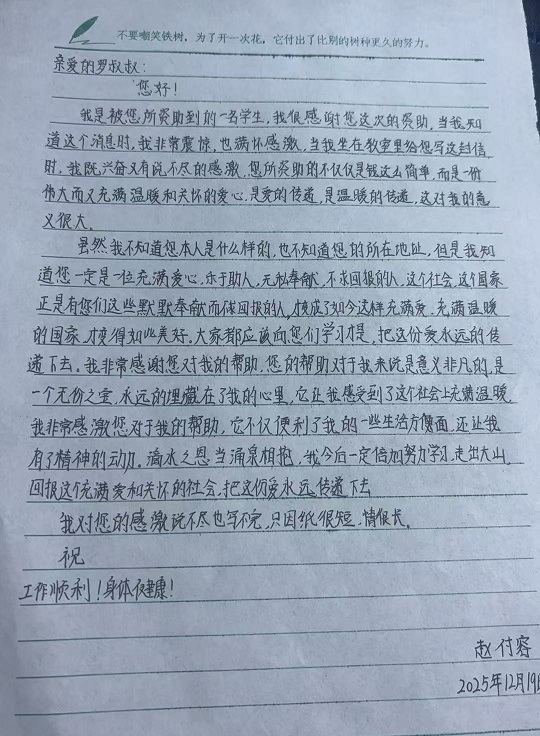 不要嘲笑铁树，为了开一次花，它付出了比别的树种更久的努力。
亲爱的罗叔叔：
您好！
我是被您所资助到的一名学生，我很感谢您这次的资助，当我知
道这个消息时，我非常震惊，也满怀感激，当我坐在教室里给您写这封信
时，我既兴奋又有说不尽的感激，您所资助的不仅仅是钱这么简单，而是一份
伟大而又充满温暖和关怀的爱心，是爱的传递，是温暖的传递，这对我的意
义很大。
虽然我不知道您本人是什么样的，也不知道您的所在地址，但是我知
道您一定是一位充满爱心，乐于助人，无私奉献，不求回报的人，这个社会，这个国家
正是有您们这些默默奉献而不求回报的人，才变成了如今这样充满爱，充满温暖
的国家，才变得如此美好。大家都应该向您们学习才是，把这份爱永远的传
递下去。我非常感谢您对我的帮助，您的帮助对于我来说是意义非凡的，是
一个无价之宝，永远的埋藏在了我的心里，它让我感受到了这个社会上充满温暖，
我非常感激您对于我的帮助，它不仅便利了我的一些生活方面，还让我
有了精神的动力。滴水之恩当涌泉相抱，我今后一定倍加努力学习，走出大山，
回报这个充满爱和关怀的社会，把这份爱永远传递下去
我对您的感激说不尽也写不完，只因纸很短，情很长。
祝
工作顺利！身体健康！
赵付容
2025年12月19日